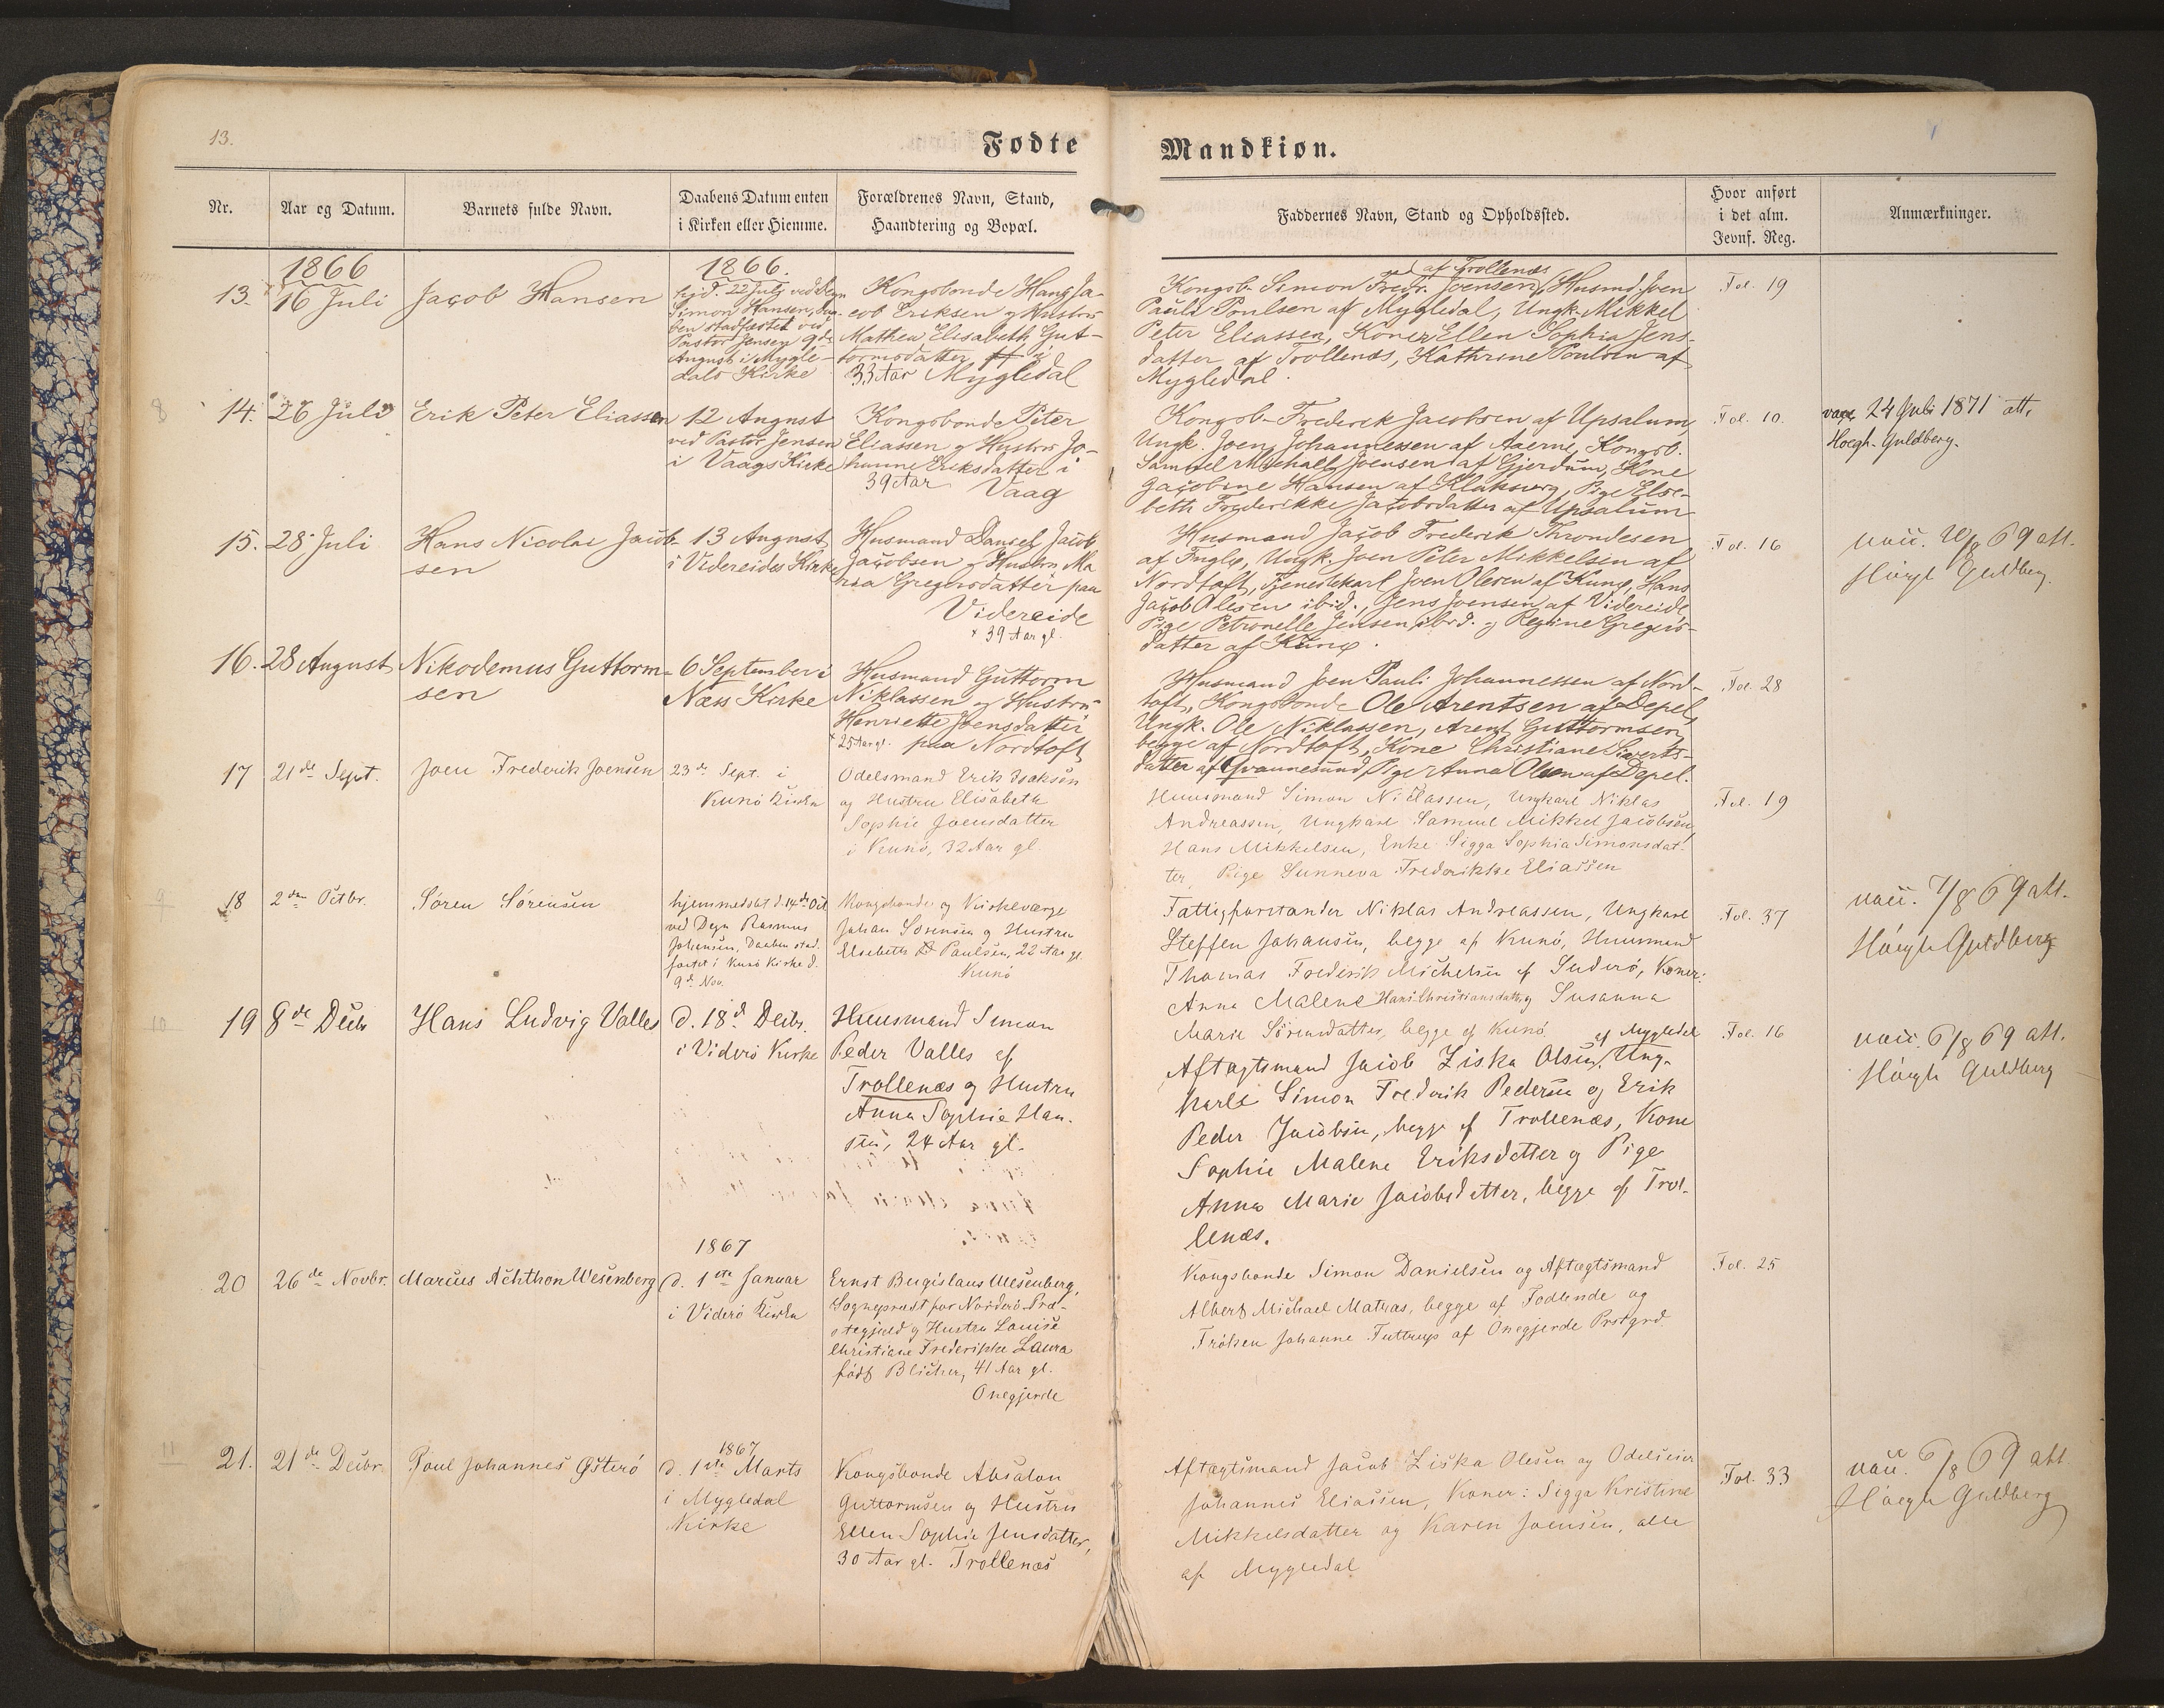 13.
Fødte
Mandkiøn.
Nr.
Aar og Datum.
Barnets fulde Navn.
Daabens Datum enten
i Kirken eller Hiemme.
Forældrenes Navn, Stand,
Haandtering og Bopæl.
Faddernes Navn, Stand og Opholdssted.
Hvor anført
i det alm.
Jevnf. Reg.
Anmærkninger.
1866
13.
16 Juli
Jacob Hansen
1866.
hjd. 22 July ved Degn
Simon Hansen, Daa-
ben stadfæstet ved
Pastor Jensen 9de
August i Mygle-
dals Kirke
Kongsbonde Hans Ja-
cob Eriksen og Hustru
Mathea Elisabeth Gut-
tormsdatter i
33 Aar Mygledal
af Trollenæs
Kongsb. Simon Fredr. Joensen, Husmd. Joen
Pauli Poulsen af Mygledal, Ungk. Mikkel
Peter Eliassen, Koner Ellen Sophia Jens-
datter af Trollenæs, Kathrine Poulsen af
Mygledal.
Fol. 19
8
14.
26 Juli
Erik Peter Eliassen
12 August
ved Pastor Jensen
i Vaags Kirke
Kongsbonde Peter
Eliassen og Hustru Jo-
hanne Eriksdatter i
39 Aar Vaag
Kongsb. Frederik Jacobsen af Upsalum,
Ungk. Joen Johannessen af Aaerne, Kongsb.
Samuel Michall Joensen af Gjerdum, Kone
Jacobine Hansen af Klaksvig, Pige Else-
beth Frederikke Jacobsdatter af Upsalum
Fol. 10.
vacc. 24 Juli 1871 att.
Høegh-Guldberg.
15.
28 Juli
Hans Nicolai Jacob-
sen
13 August
i Videreides Kirke
Husmand Daniel Jacob
Jacobsen og Hustru Ma
ria Gregersdatter paa
Videreide
* 39 Aar gl.
Husmand Jacob Frederik Throndesen
af Fuglø, Ungk. Joen Peter Mikkelsen af
Nordtoft, Tjenestekarl Joen Olesen af Kunø, Hans
Jacob Olesen ibid., Jens Joensen af Videreide,
Pige Petronelle Jensen ibid. og Regine Gregers-
datter af Kunø.
Fol. 16
69 att.
Høegh Guldberg.
16.
28 August
Nikodemus Guttorm-
sen
6 September i
Næs Kirke
Husmand Guttorm
Niklassen og Hustru
Henriette Joensdatter
* 25 Aar gl. paa Nordtoft
Husmand Joen Pauli Johannessen af Nord-
toft, Kongsbonde Ole Arentsen af Depel,
Ungk. Ole Niklassen, Arent Guttormsen,
begge af Nordtoft, Kone Christiane Siverts-
datter af Qvannesund, Pige Anna Olsen af Depel.
Fol. 28
17
21de Sept.
Joen Frederik Joensen
23de Sept. i
Kunø Kirke
Odelsmand Erik Isaksen
og Hustru Elisabeth
Sophie Joensdatter
i Kunø, 32 Aar gl
Huusmand Simon Niclassen, Ungkarl Niklas
Andreassen, Ungkarl Samuel Mikkel Jacobsen,
Hans Mikkelsen, Enke Sigga Sophia Simonsdat-
ter, Pige Sunneva Frederikke Eliassen
Fol. 19
9
18
2den Octbr.
Søren Sørensen
hjemmedøbt d. 14de Oct
ved Degn Rasmus
Johensen, Daaben stad-
fæstet i Kunø Kirke d.
9de Nov.
Kongsbonde og Kirkeværge
Johan Sørensen og Hustru
Elsebeth Paulsen, 22 Aar gl.
Kunø
Fattigforstander Niklas Andreassen, Ungkarl
Steffen Johansen, begge af Kunø, Huusmand
Thomas Frederik Michelsen af Suderø, Koner:
Anna Malene Hans Christiansdatter og Susanna
Marie Sørensdatter, begge af Kunø
Fol. 37
vacc. 7/8 69 att.
Høegh Guldberg
10
19
8de Decbr
Hans Ludvig Valles
d. 18de Decbr.
i Viderø Kirke
Huusmand Simon
Peder Valles af
Trollenæs og Hustru
Anna Sophie Han-
sen, 24 Aar gl.
af Mygledal
Aftægtsmand Jacob Ziska Olsen, Ung-
karle Simon Frederik Pedersen og Erik
Peder Jacobsen, begge af Trollenæs, Kone
Sophie Malene Eriksdatter og Pige
Anna Marie Jacobsdatter, begge af Trol-
lenæs.
Fol. 16
vacc. 6/8 69 att.
Høegh Guldberg
20
26de Novbr.
Marcus Achthon Wesenberg
1867
d. 1ste Januar
i Viderø Kirke
Ernst Bugislaus Wesenberg,
Sognepræst for Norderø Præ-
stegjeld og Hustru Louise
Christiane Frederikke Laura
født Blicher, 41 Aar gl.
Onegjerde
Kongsbonde Simon Danielsen og Aftægtsmand
Albert Michael Mathias, begge af Todlende og
Frøken Johanne Tuttrup af Onegjerde Prstgrd.
Fol. 25
11
21.
21de Decbr
Poul Johannes Østerø
1867
d. 1ste Marts
i Mygledal
Kirke
Kongsbonde Absalon
Guttormsen og Hustru
Ellen Sophie Jensdatter,
30 Aar gl. Trollenæs
Aftægtsmand Jacob Ziska Olesen og Odelseier
Johannes Eliassen, Koner: Sigga Kristine
Mikkelsdatter og Karen Joensen, alle
af Mygledal
Fol. 33
vacc. 6/8 69 att
Høegh Guldberg